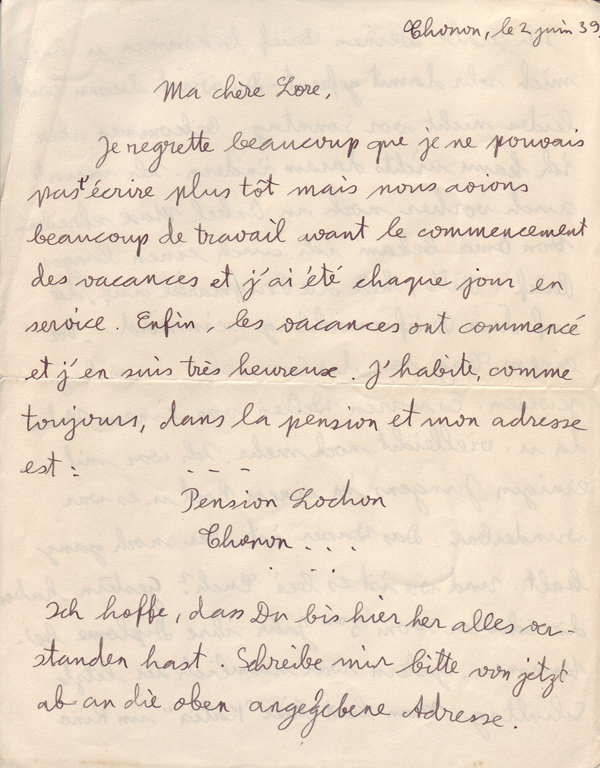 Thonon, le 2 juin 39
Ma chère Lore,
Je regrette beaucoup que je ne pouvais
pas t'écrire plus tôt mais nous avions
beaucoup de travail avant le commencement
des vacances et j'ai été chaque jour en
service. Enfin, les vacances ont commencé
et j'en suis très heureux. J'habite, comme
toujours, dans la pension et mon adresse
est :
Pension Lochon
Thonon ...
Ich hoffe, dass Du bis hier her alles ver-
standen hast. Schreibe mir bitte von jetzt
ab an die oben angegebene Adresse.